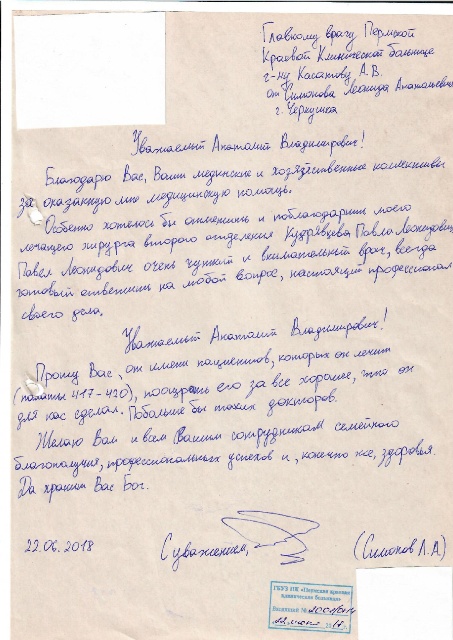 Главному врачу Пермской
Краевой Клинической больнице
г-ну Касатову А.В.
от Симонова Леонида Анатольевича
г. Чернушка
Уважаемый Анатолий Владимирович!
Благодарю Вас, Ваши медицинские и хозяйственные коллективы
за оказанную мне медицинскую помощь.
Особенно хотелось бы отметить и поблагодарить моего
лечащего хирурга второго отделения Кудрявцева Павла Леонидовича
Павел Леонидович очень чуткий и внимательный врач, всегда
готовый ответить на любой вопрос, настоящий профессионал
своего дела.
Уважаемый Анатолий Владимирович!
Прошу Вас, от имени пациентов, которых он лечит
(палаты 417-420), поощрить его за все хорошее, что он
для нас сделал. Побольше бы таких докторов.
Желаю Вам и всем Вашим сотрудникам семейного
благополучия, профессиональных успехов и, конечно же, здоровья.
Да хранит Вас Бог.
22.06.2018
С уважением,
(Симонов Л.А)
ГБУЗ ПК «Пермская краевая
клиническая больница»
Входящий №
22 июня 20